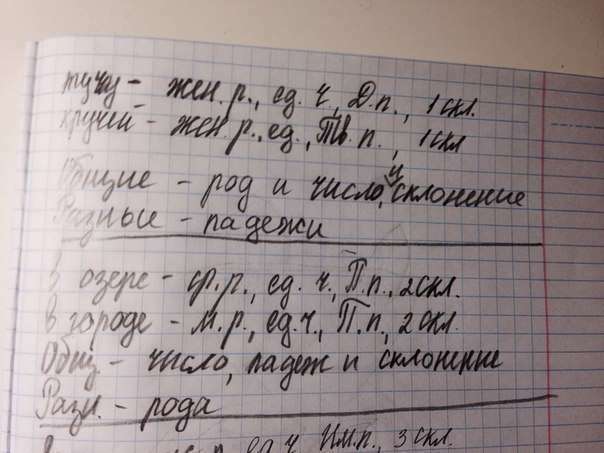 тучу - жен. р., ед. ч, Д.п., 1 скл.
кручей - жен. р., ед., Тв. п., 1 скл
Общие - род и число, и склонение
Разные - падежи
в озере - ср. р., ед. ч., П.п., 2 скл.
в городе - м. р., ед. ч., П.п., 2 скл.
Общ. - число, падеж и склонение
Разн. - рода
ед. ч Им.п., 3 скл.